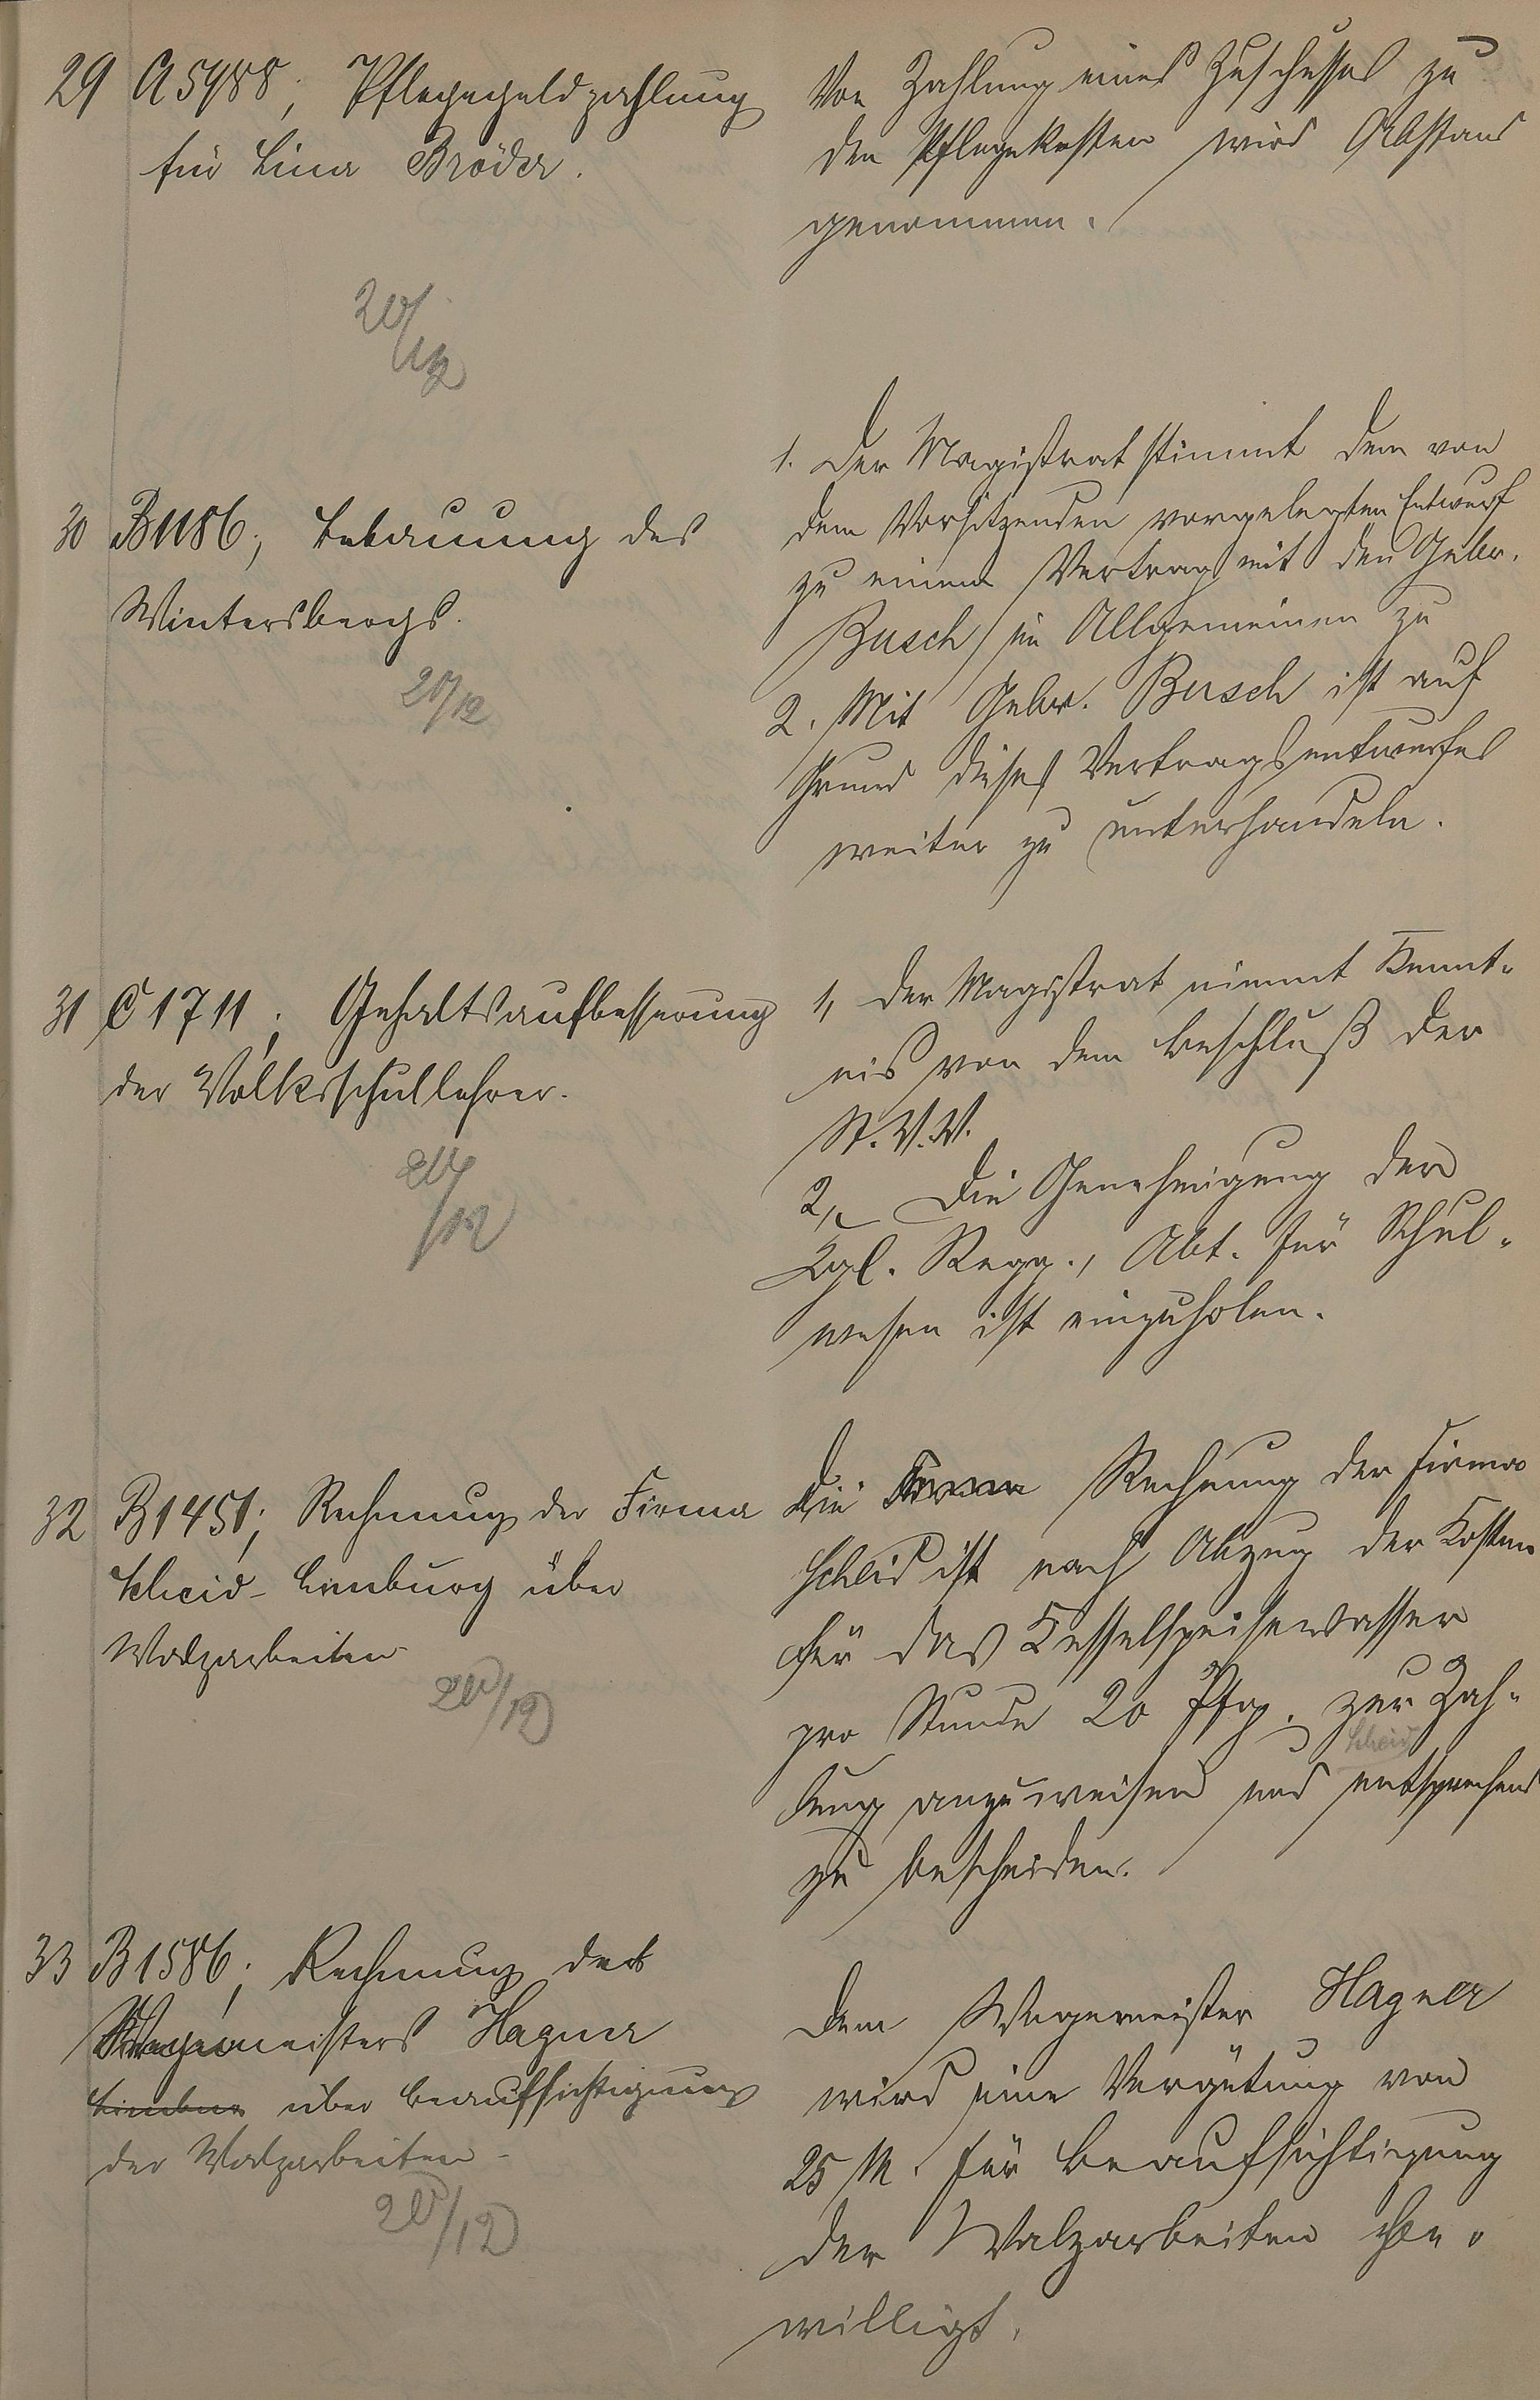 29 A 5988; Pflegegeldzahlung
für Lina Bröder.
20/12
Von Zahlung eines Zuschusses zu
den Pflegekosten wird Abstand
genommen.
30 B 1186; Bebauung des
Wintersbergs.
20/12
1. Der Magistrat stimmt dem von
dem Vorsitzenden vorgelegten Entwurf
zu einem Vertrag mit den Gebr.
Busch im Allgemeinen zu
2. Mit Gebr. Busch ist auf
Grund dieses Vertragsentwurfes
weiter zu unterhandeln.
31 C 1711; Gehaltsaufbesserung
der Volksschullehrer.
20/12
1, Der Magistrat nimmt Kennt-
nis von dem Beschluß der
St. V. V.
2, Die Genehmigung der
Kgl. Regg., Abt. für Schul-
wesen ist einzuholen.
32 B 1451; Rechnung der Firma
Scheid-Limburg über
Walzarbeiten
20/12
Die Firma Rechnung der Firma
Scheid ist nach Abzug der Kosten
für das Kesselspeisewasser
pro Stunde 20 Pfg. zur Zah-
Scheid
lung anzuweisen und entsprechend
zu bescheiden.
33 B 1586; Rechnung des
Wegemeisters Hagner
Limburg über Beaufsichtigung
der Walzarbeiten
20/12
Dem Wegemeister Hagner
wird eine Vergütung von
25 M. für Beaufsichtigung
der Walzarbeiten be-
willigt.